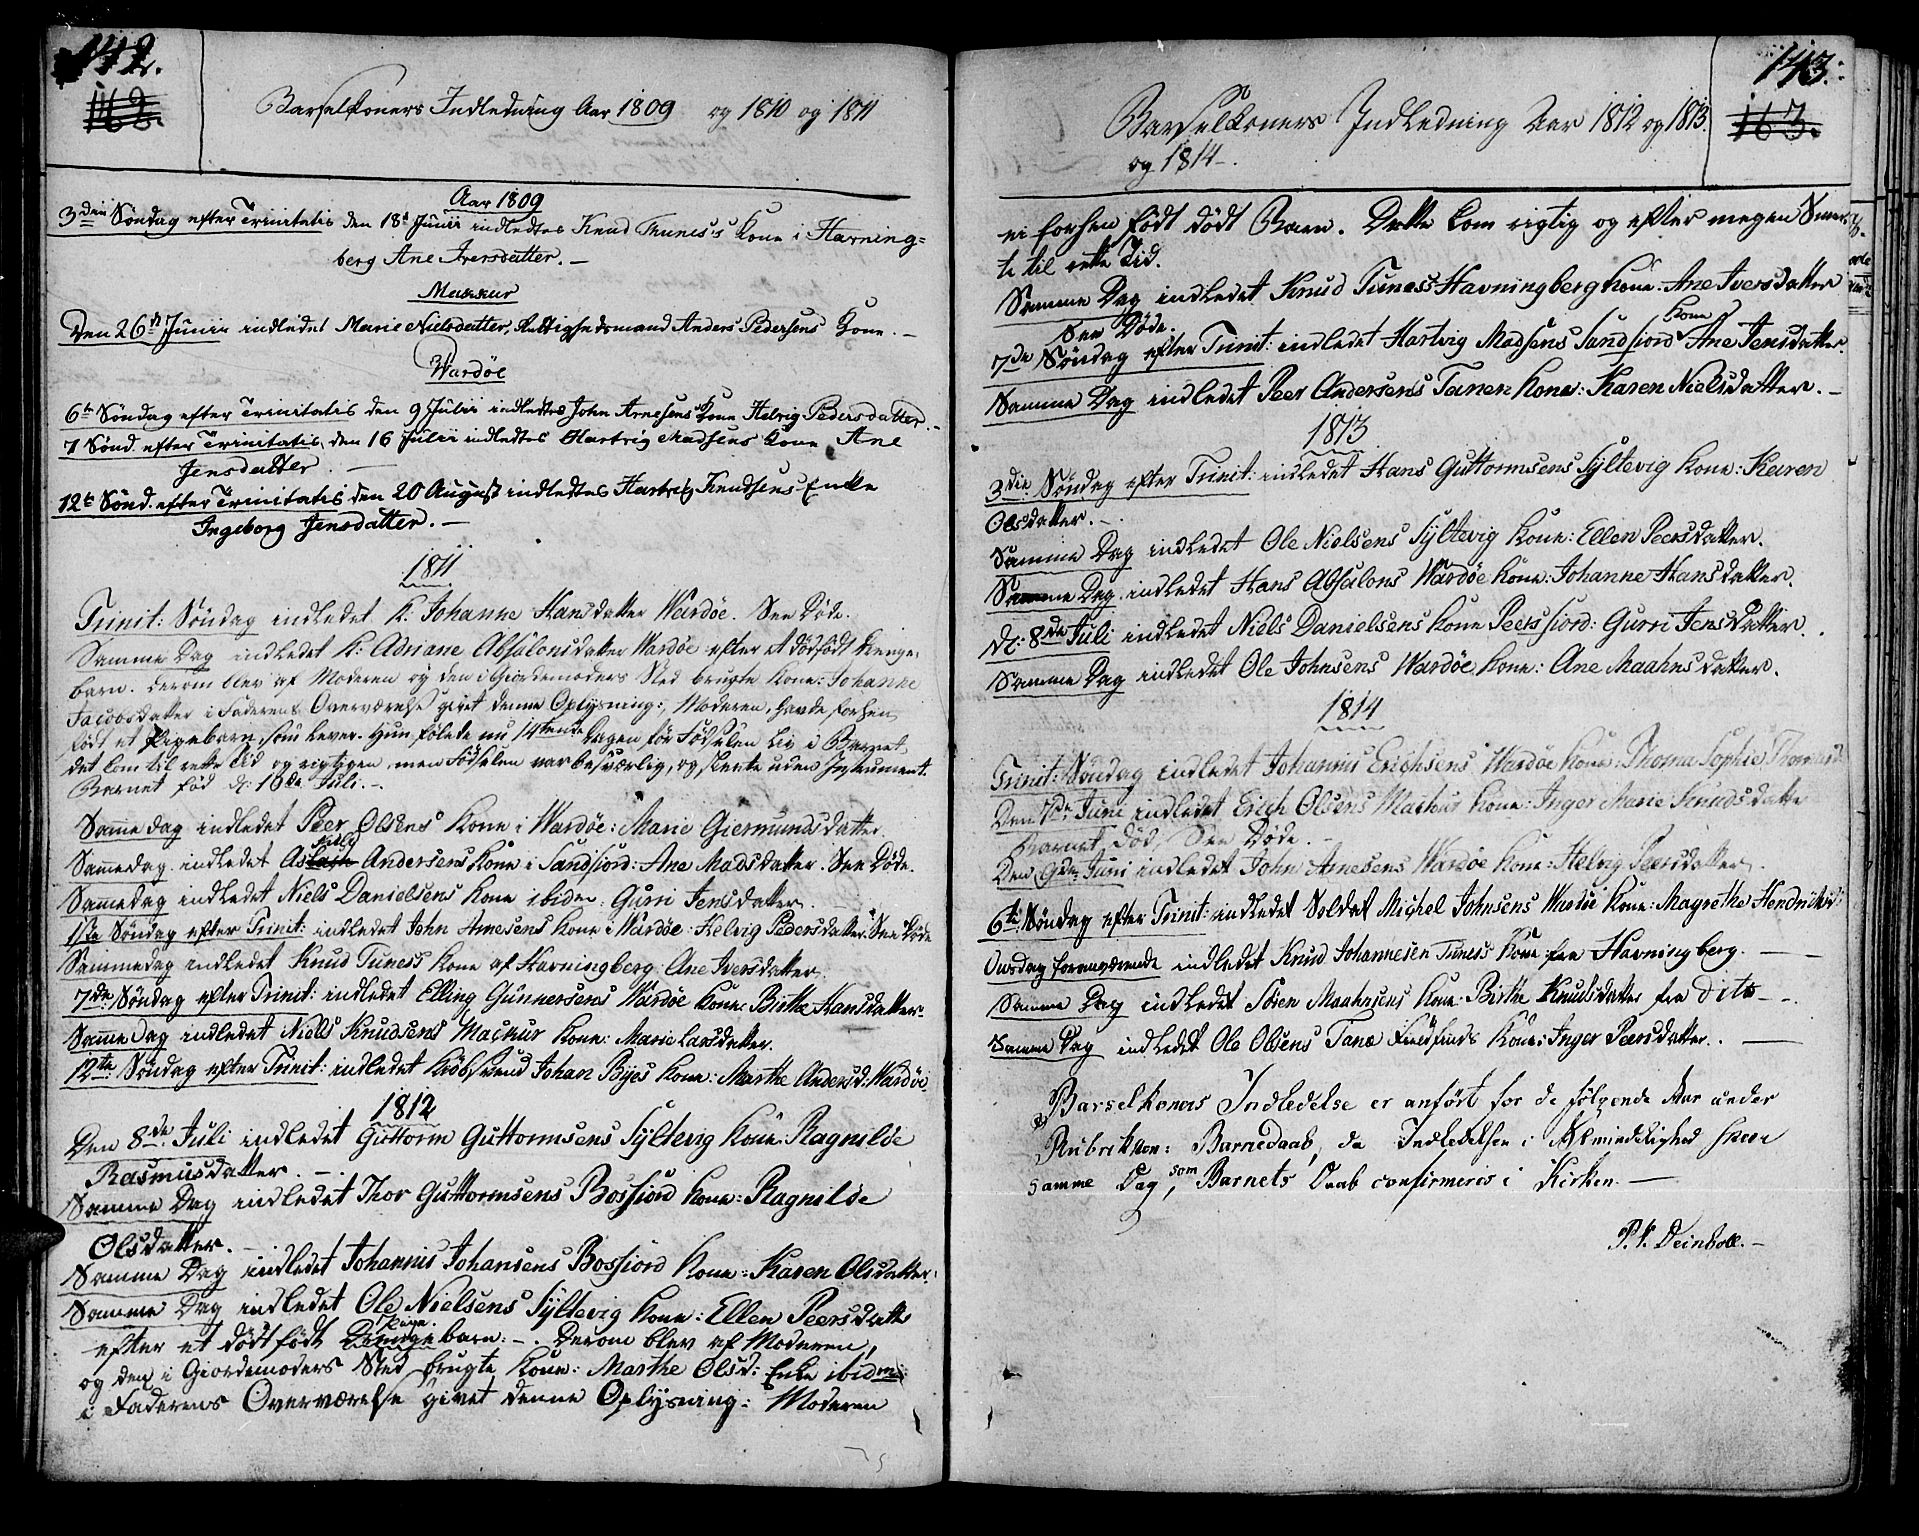 142.
162.
Barselkoners Indledning Aar 1809 og 1810 og 1811
Aar 1809
3die Søndag efter Trinitatis den 18d Junii indledtes Knud Thunes's Kone i Havning=
berg Ane Iversdatter. —
Makkur
Den 26th Junii indledet Marie Nielsdatter, Rettighedsmand Anders Pedersens Kone. —
Wardøe
6te Søndag efter Trinitatis den 9 Julii indledtes John Arnesens Kone Helvig Pedersdatter. —
7 Sønd. efter Trinitatis, den 16 Julii indledtes Hartvig Madsens Kone Ane
Jensdatter. —
12te Sønd. efter Trinitatis den 20 August indledtes Hartvig Knudsens Enke
Ingeborg Jensdatter. —
1811
Trinit: Søndag indledet K. Johanne Hansdatter Wardøe. See Døde.
Samme Dag indledet K: Adriane Absalonsdatter Wardøe efter et dødfødt Drenge-
barn. Derom blev af Moderen og den i Giordemoders Sted brugte Kone: Johanne
Jacobsdatter i Faderens Overværelse givet denne Oplysning: Moderen havde forhen
født et Pigebarn, som lever. Hun følede nu 14tende Dagen før Fødselen Liv i Barnet,
det kom til rette Tid og rigtigen, men Fødselen var besværlig, og skeete uden Instrument.
Barnet fød d: 10de Juli. —
Samme dag indledet Peer Olsens Kone i Wardøe: Marie Giermundsdatter.
Sammedag indledet Aslak Andersens Kone i Sandfiord: Ane Madsdatter. See Døde.
Sammedag indledet Niels Danielsens Kone ibiden: Gurri Jensdatter.
1ste Søndag efter Trinit: indledet John Arnesens Kone i Wardøe: Helvig Pedersdatter. See Døde
Sammedag indledet Knud Tuness Kone af Havningberg: Ane Iversdatter.
7de Søndag efter Trinit: indledet Elling Gunnersens Wardøe Kone: Birthe Hansdatter.
Samme Dag indledet Niels Knudsens Mackur Kone: Marie Larsdatter.
12te Søndag efter Trinit: indledet Kiøbsvend Johan Byes Kone: Marthe Andersd: Wardøe
1812
Den 8de Juli indledet Guttorm Guttormsens Syltevig Kone: Ragnilde
Rasmusdatter. —
Samme Dag indledet Thor Guttormsens Bossfiord Kone: Ragnilde
Olsdatter. —
Samme Dag indledet Johannis Johansens Bosfiord Kone: Karen Olsdatter.
Samme Dag indledet Ole Nielsens Syltevig Kone: Ellen Peersdatter
Pige
efter et dødfødt Drengebarn: —. Derom blev af Moderen,
og den i Giordemoders Sted brugte Kone: Marthe Olsd: Enke ibidm:
i Faderens Overværelse givet denne Oplysning: Moderen
143.
163.
Barselkoners Indledning Aar 1812 og 1813.
og 1814 —.
ei forhen født dødt Barn. Dette kom rigtig og efter megen Smer-
te til rette Tid.
Samme Dag indledet Knud Tuness Havningberg Kone: Ane Iversdatter
See Døde.
Kone
7de Søndag efter Trinit: indledet Hartvig Madsens Sandfiord Ane Jensdatter.
Samme Dag indledet Peer Andersens Tanen Kone: Karen Nielsdatter. —
1813
3die Søndag efter Trinit: indledet Hans Guttormsens Syltevig Kone: Karen
Olsdatter. —.
Samme Dag indledet Ole Nielsens Syltevig Kone: Ellen Peersdatter.
Samme Dag indledet Hans Absalons Wardøe Kone: Johanne Hansdatter.
D: 8de Juli indledet Niels Danielsens Kone Peersfiord: Gurri Jensdatter.
Samme Dag indledet Ole Johnsens Wardøe Kone: Ane Maahnsdatter.
1814
Trinit: Søndag indledet Johannis Erichsens Wardøe Kone: Thoma Sophie Thomasd:
Den 7de Juni indledet Erich Olsens Mackur Kone: Inger Marie Knudsdatter
Barnet død, See Døde. —
Den 9de Juni indledet John Arnesens Wardøe Kone: Helvig Peersdatter.
6te Søndag efter Trinit: indledet Soldat Michel Johnsens Wardøe Kone: Magrethe Hendriksd:
Onsdag foranværende indledet Knud Johannesen Tuness Kone fra Havningberg. —
Samme Dag indledet Søren Maahnsens Kone: Birthe Knudsdatter fra dito —.
Samme Dag indledet Ole Olsens Tanæ Fieldfinds Kone: Inger Peersdatter. —
Barselkoners Indledelse er anført for de følgende Aar under
Rubrikken: Barnedaab, da Indledelsen i Almindelighed skeer
samme Dag, som Barnets Daab confirmeres i Kirken. —
P. V. Deinboll. —